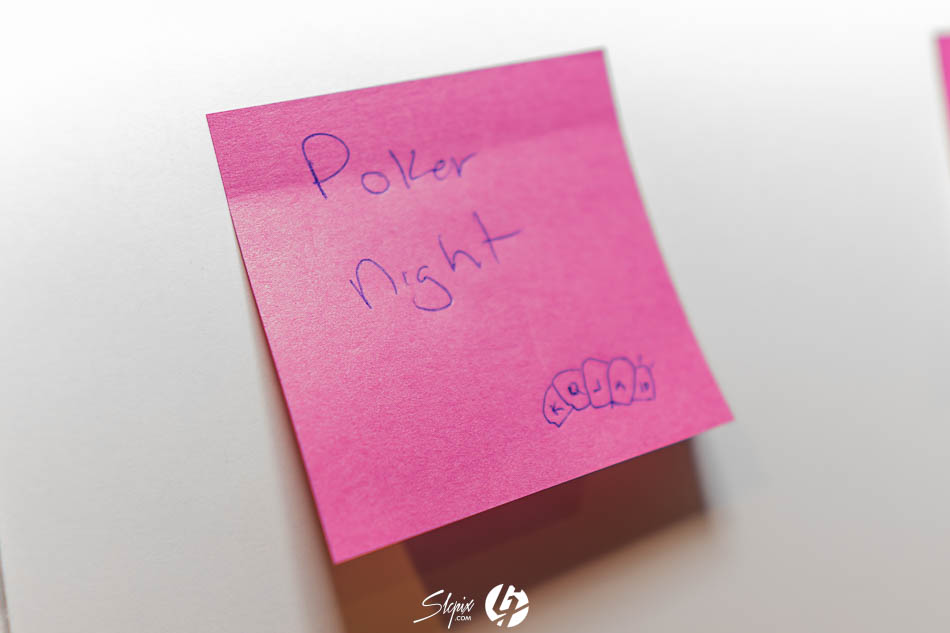 Poker
night
K Q J A 10
Slcpix
.COM